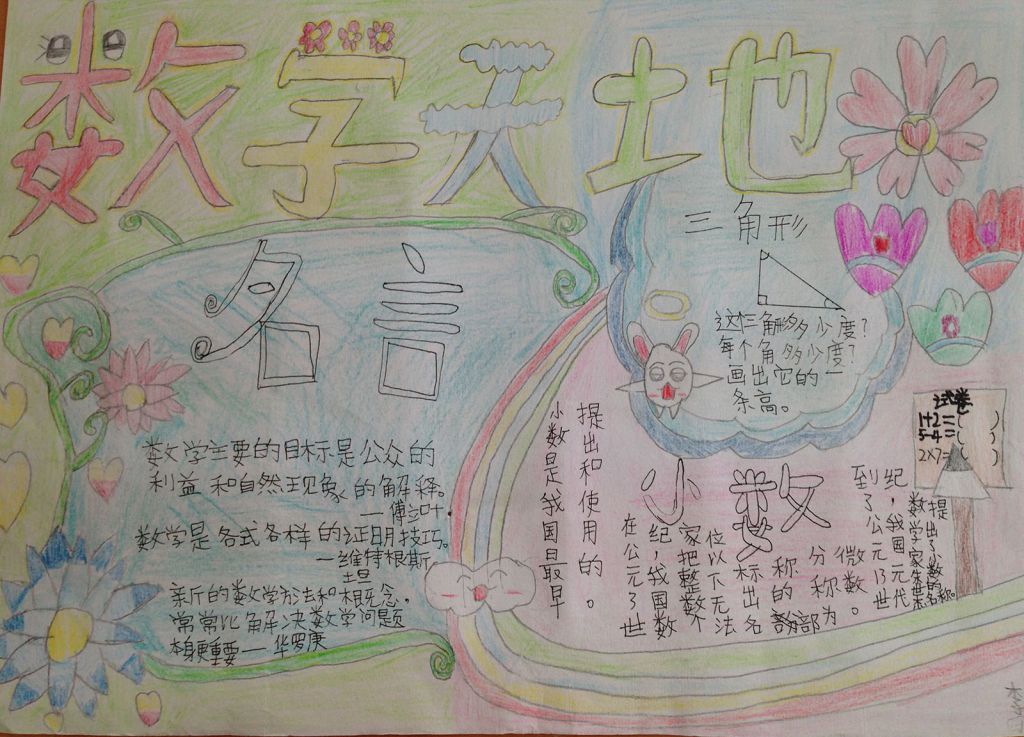 数学天地
名言
数学主要的目标是公众的
利益和自然现象的解释。
—傅立叶。
数学是各式各样的证明技巧。
—维特根斯坦
新的数学方法和概念，
常常比解决数学问题
本身更重要—华罗庚
三角形
这个三角形多少度？
每个角多少度？
画出它的一
条高。
试卷
1+2=( )
5-4=( )
2×7=( )
小数
小数是我国最早
提出和使用的。
在公元了世
纪，我国数
家把整数个
位以下无法
标出名
称的部分称为
微数。
到了公元13世
纪，我国元代
数学家朱世
提出了小数
名称。